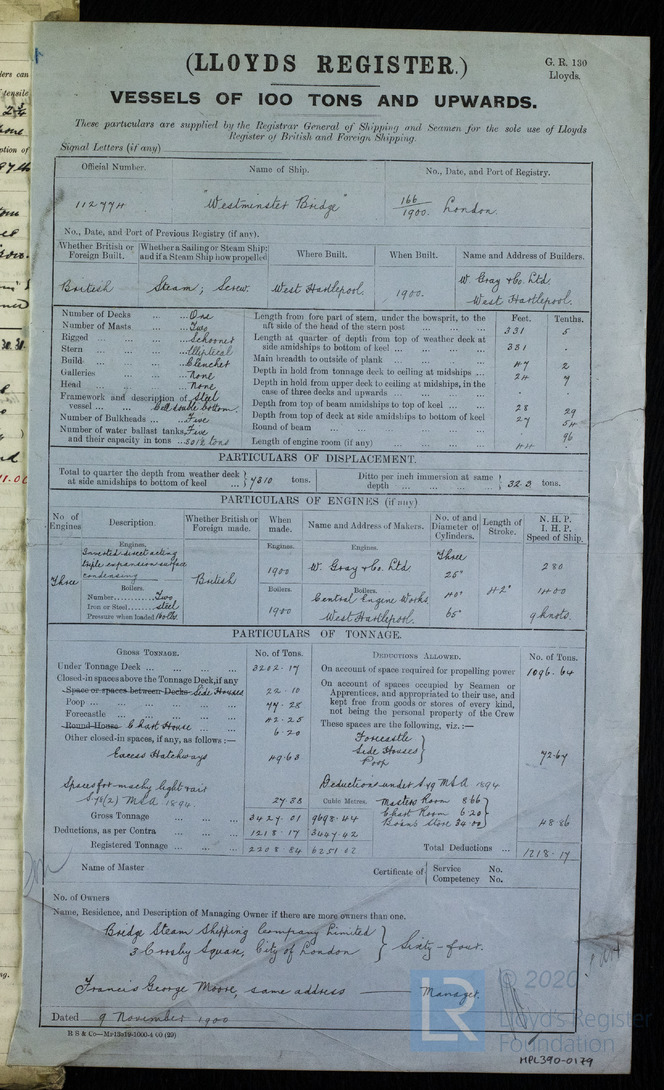 (LLOYDS REGISTER.)
G. R. 130
Lloyds.
VESSELS OF 100 TONS AND UPWARDS.
These particulars are supplied by the Registrar General of Shipping and Seamen for the sole use of Lloyds
Register of British and Foreign Shipping.
Signal Letters (if any)
Official Number. Name of Ship. No., Date, and Port of Registry.
112774 "Westminster Bridge" 166/1900. London.
No., Date, and Port of Previous Registry (if any).
Whether British or Foreign Built. Whether a Sailing or Steam Ship; and if a Steam Ship how propelled Where Built. When Built. Name and Address of Builders.
British Steam; Screw. West Hartlepool. 1900. W. Gray & Co. Ltd. West Hartlepool.
Feet. Tenths.
Number of Decks ... ... One
Number of Masts ... ... Two
Rigged ... ... Schooner
Stern ... ... Elliptical
Build ... ... Clencher
Galleries ... ... None
Head ... ... None
Framework and description of vessel ... Steel Cell double bottom.
Number of Bulkheads ... Five
Number of water ballast tanks, and their capacity in tons Five ... 501½ tons
Length from fore part of stem, under the bowsprit, to the aft side of the head of the stern post ... 331 5
Length at quarter of depth from top of weather deck at side amidships to bottom of keel ... 331 .
Main breadth to outside of plank ... 47 2
Depth in hold from tonnage deck to ceiling at midships ... 24 7
Depth in hold from upper deck to ceiling at midships, in the case of three decks and upwards ... . .
Depth from top of beam amidships to top of keel ... 28 29
Depth from top of deck at side amidships to bottom of keel 27 54
Round of beam ... 96
Length of engine room (if any) ... 44
PARTICULARS OF DISPLACEMENT.
Total to quarter the depth from weather deck at side amidships to bottom of keel ... } 7310 tons. Ditto per inch immersion at same depth ... } 32.3 tons.
PARTICULARS OF ENGINES (if any)
No. of Engines Description. Whether British or Foreign made. When made. Name and Address of Makers. No. of and Diameter of Cylinders. Length of Stroke. N. H. P. I. H. P. Speed of Ship.
Engines. Engines. Engines.
Three Inverted direct acting triple expansion surface condensing British 1900 W. Gray & Co. Ltd Three 25" 40" 65" 42" 280 1400 9 knots.
Boilers. Boilers. Boilers.
Number .......... Two
Iron or Steel ....... steel
Pressure when loaded 160 lbs.
1900 Central Engine Works West Hartlepool.
PARTICULARS OF TONNAGE.
GROSS TONNAGE. No. of Tons. DEDUCTIONS ALLOWED. No. of Tons.
Under Tonnage Deck ... 3202.17
Closed-in spaces above the Tonnage Deck, if any
Space or spaces between Decks Side Houses 22.10
Poop ... 77.28
Forecastle ... 42.25
Round House Chart House ... 6.20
Other closed-in spaces, if any, as follows:—
Excess Hatchways 49.63
Spaces for machy light & air
S 78(2) MSA 1894. 27.38
Gross Tonnage ... 3427.01
Deductions, as per Contra ... 1218.17
Registered Tonnage ... 2208.84
Cubic Metres.
9698.44
3447.42
6251.02
On account of space required for propelling power 1096.64
On account of spaces occupied by Seamen or Apprentices, and appropriated to their use, and kept free from goods or stores of every kind, not being the personal property of the Crew
These spaces are the following, viz.:—
Forecastle
Side Houses
Poop } 72.67
Deductions under S 79 MSA 1894
Masters Room 8.66
Chart Room 6.20
Boatns Store 34.00 } 48.86
Total Deductions ... 1218.17
Name of Master
Certificate of { Service No.
Competency No.
No. of Owners
Name, Residence, and Description of Managing Owner if there are more owners than one.
Bridge Steam Shipping Company Limited
3 Crosby Square, City of London } Sixty-four.
Francis George Moore, same address — Manager.
Dated 9 November 1900
R S & Co—
© 2020
LR
Lloyd's Register
Foundation
HPL390-0179